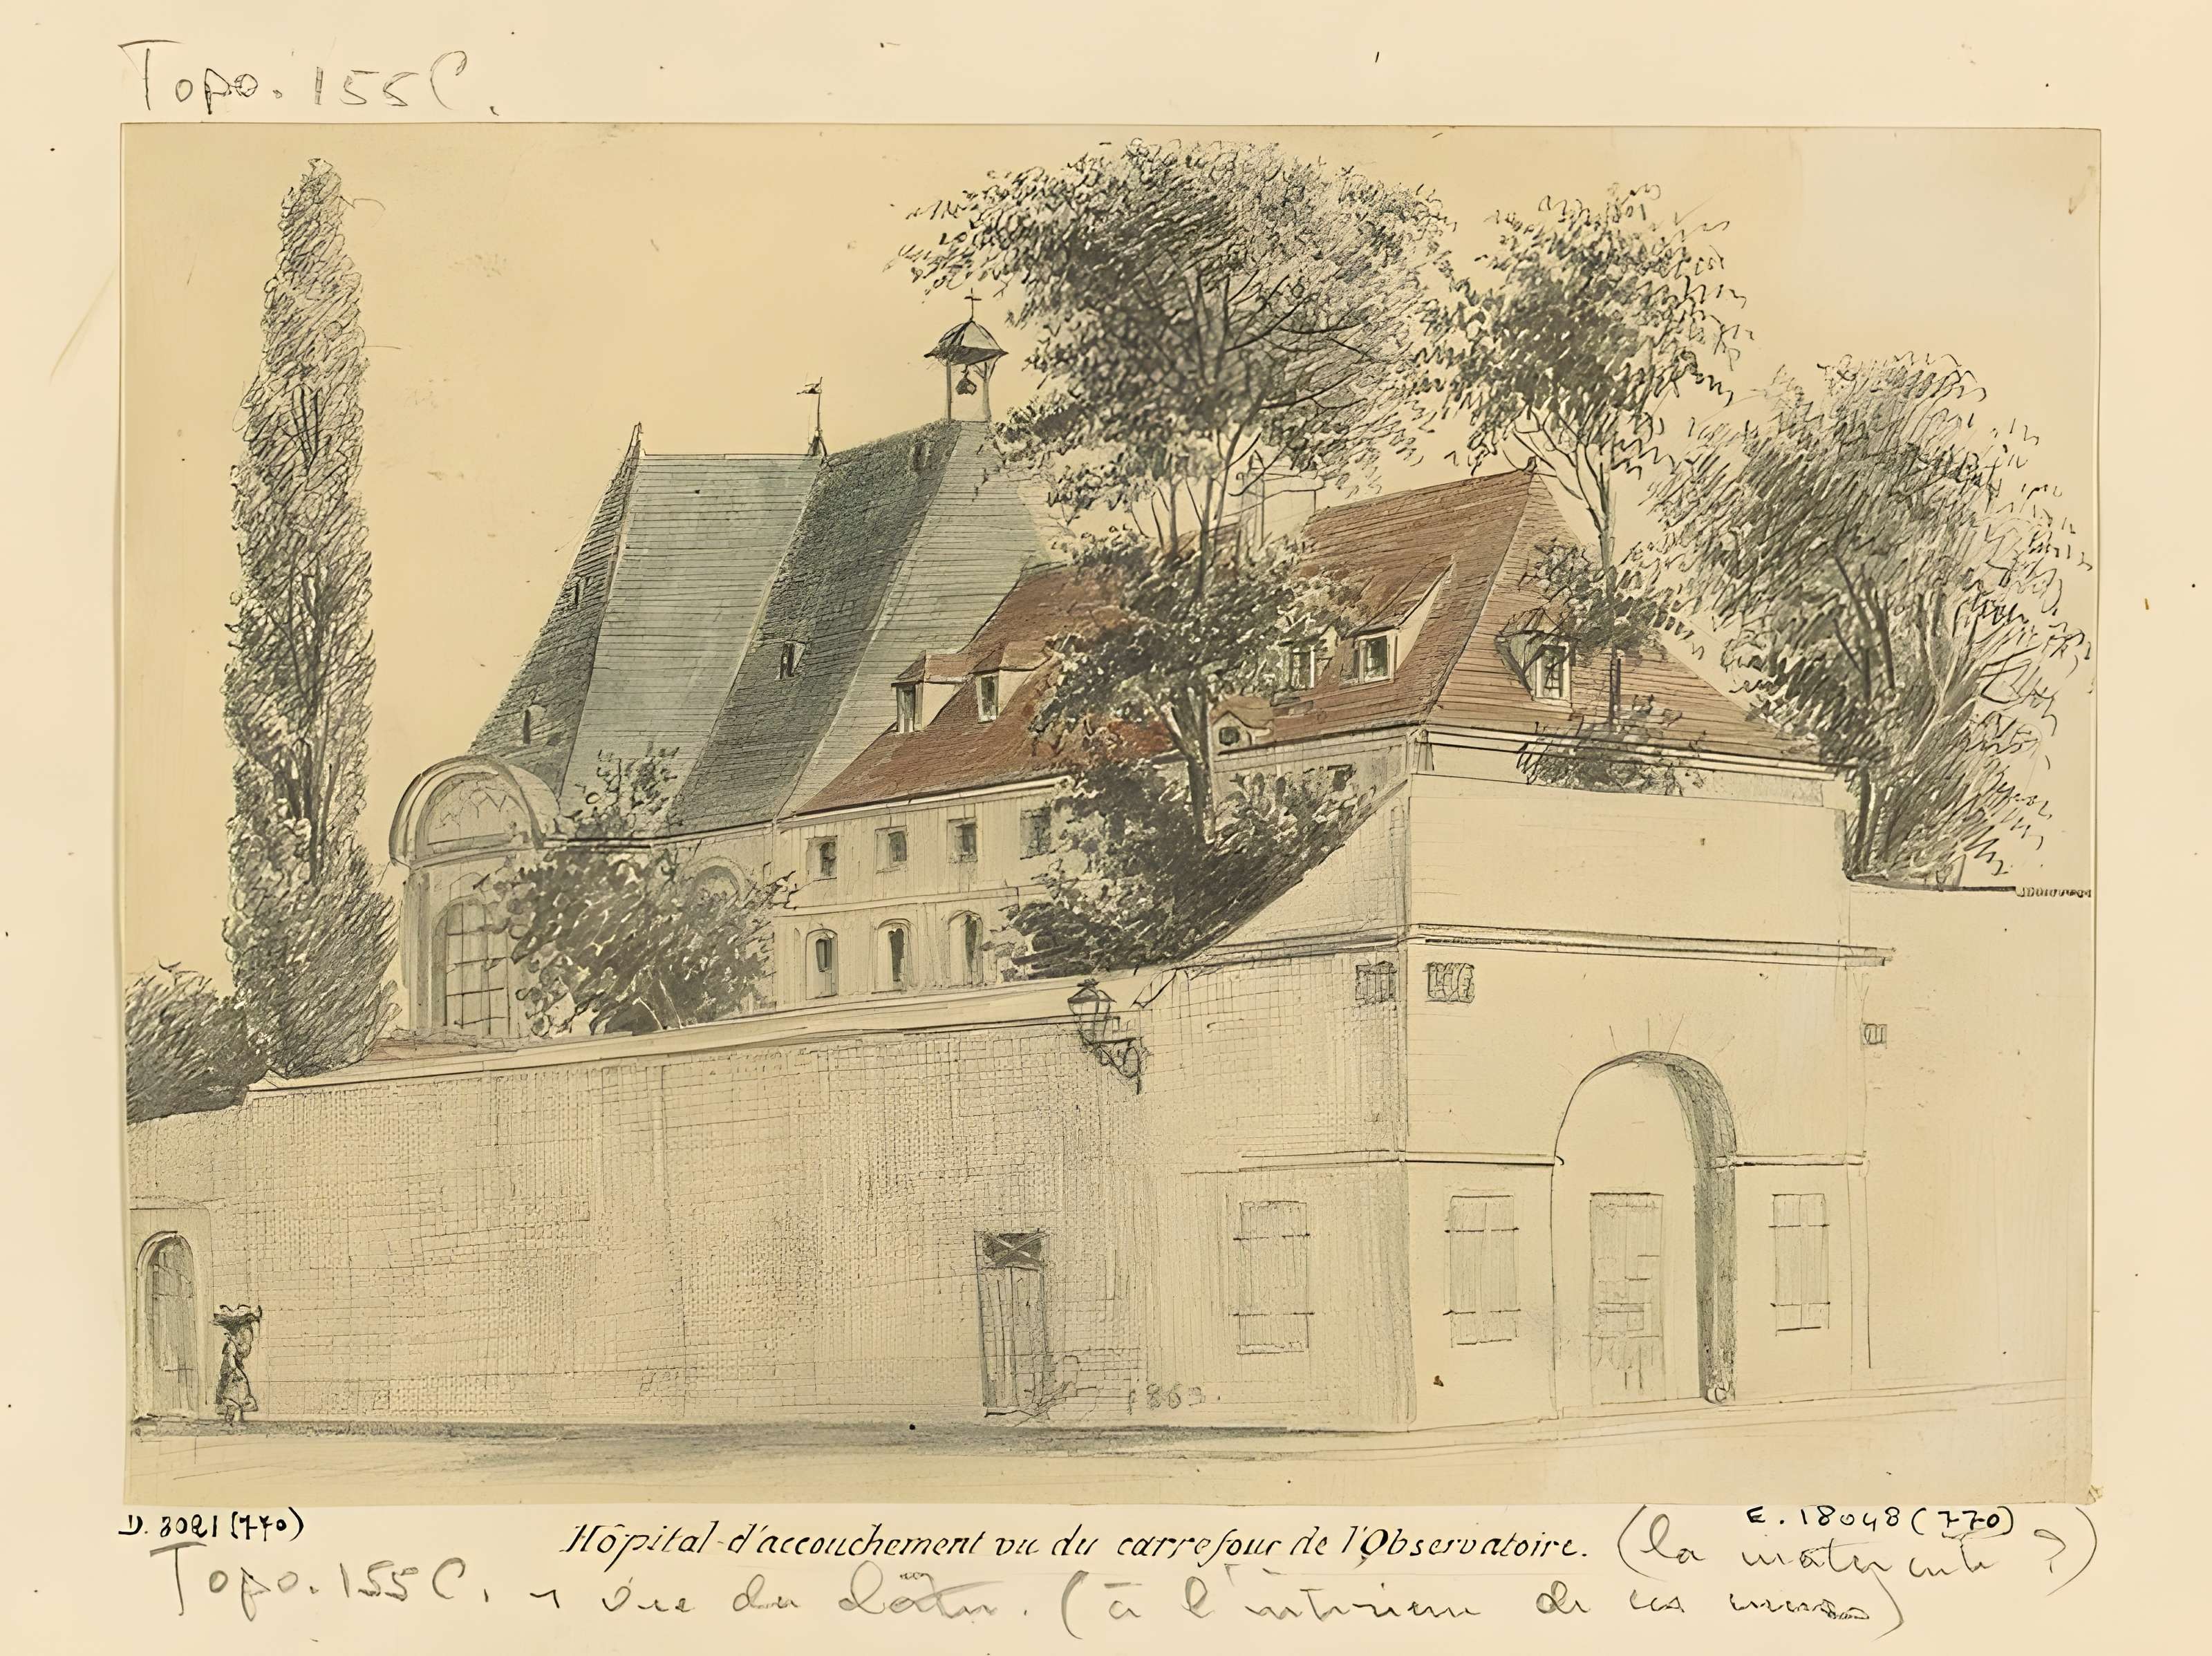 Topo. 155 C.
1863.
D. 3021 (770)
E. 18048 (770)
Hôpital d'accouchement vu du carrefour de l'Observatoire. (la maternité ?)
Topo. 155 C. vue du (à l'intérieur de ses murs)